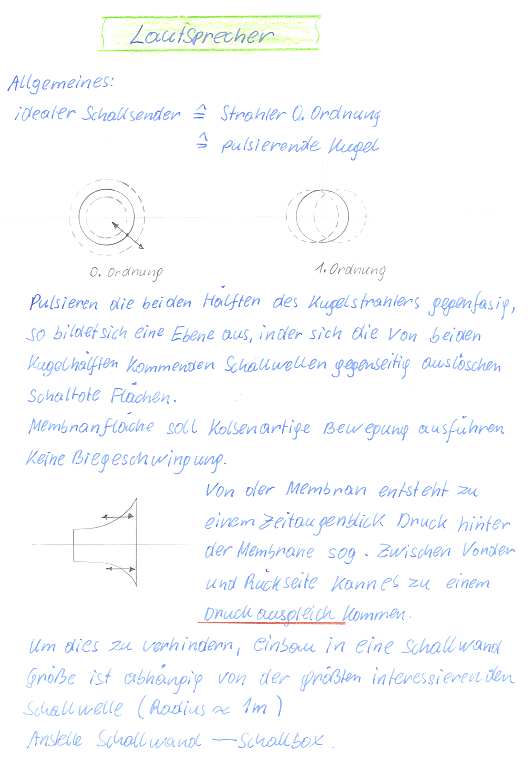 Lautsprecher
Allgemeines:
idealer Schallsender ≙ Strahler 0. Ordnung
≙ pulsierende Kugel
0. Ordnung
1. Ordnung
Pulsieren die beiden Hälften des Kugelstrahlers gegenfasig,
so bildet sich eine Ebene aus, in der sich die von beiden
Kugelhälften kommenden Schallwellen gegenseitig auslöschen
schaltote Flächen.
Membranfläche soll kolbenartige Bewegung ausführen
keine Biegeschwingung.
Von der Membran entsteht zu
einem Zeitaugenblick Druck hinter
der Membrane sog. Zwischen Vorder
und Rückseite kann es zu einem
Druckausgleich kommen.
Um dies zu verhindern, einbau in eine Schallwand
Größe ist abhängig von der größten interessierenden
Schallwelle (Radius ≈ 1m)
Anstelle Schallwand — Schallbox.